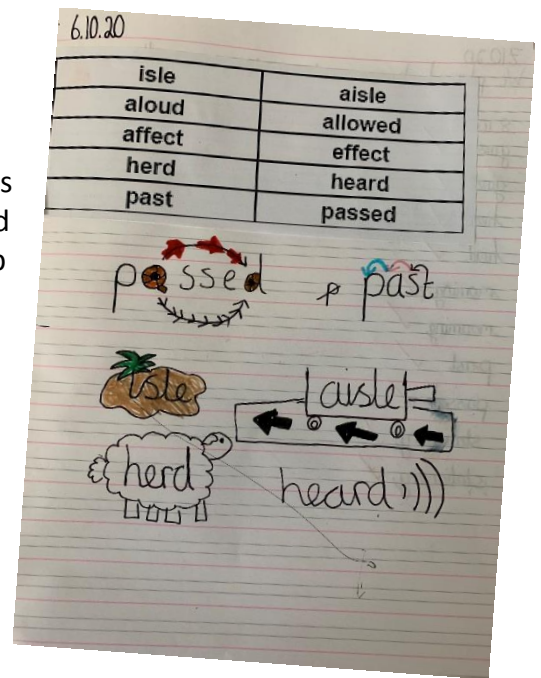 6.10.20
isle aisle
aloud allowed
affect effect
herd heard
past passed
passed p past
isle aisle
herd heard